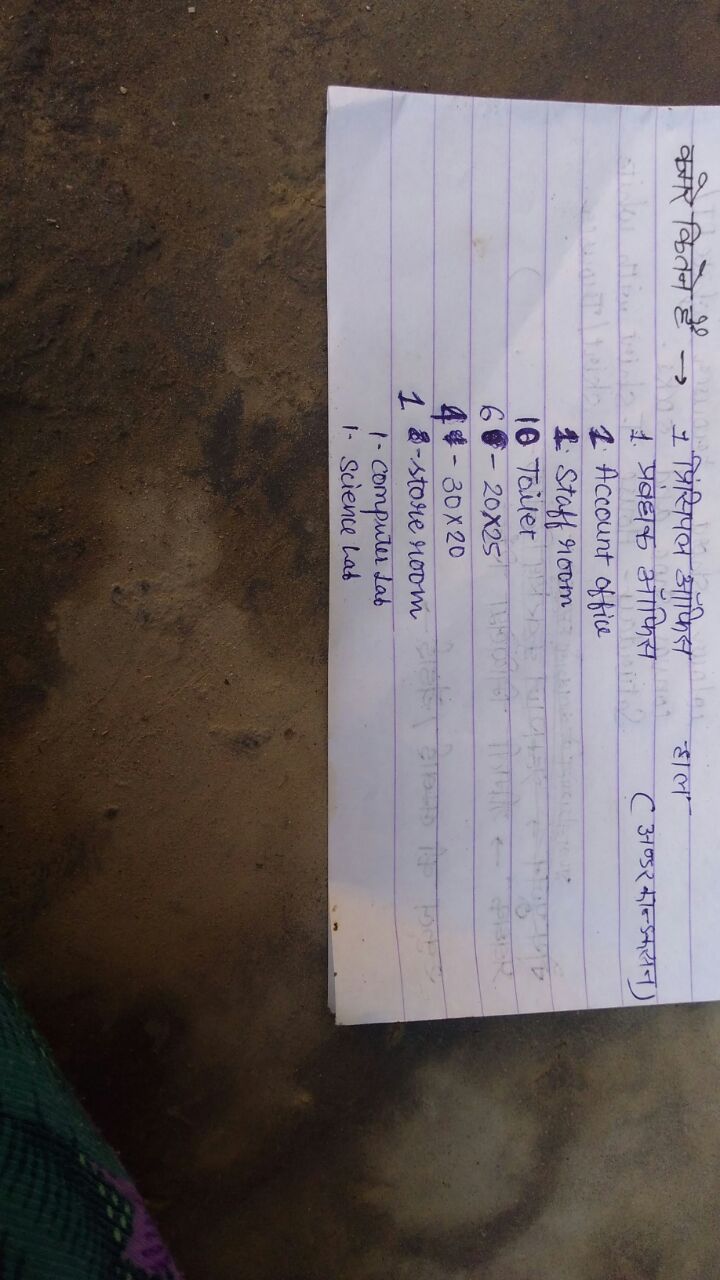 कमरे कितने हैं → 1 प्रिंसिपल ऑफिस हाल
1. प्रबंधक ऑफिस (अण्डर कान्डक्सन)
1. Account office
1. Staff room
10 Toilet
6 - 20X25
4 - 30X20
1 - store room
1- computer Lab
1- Science Lab